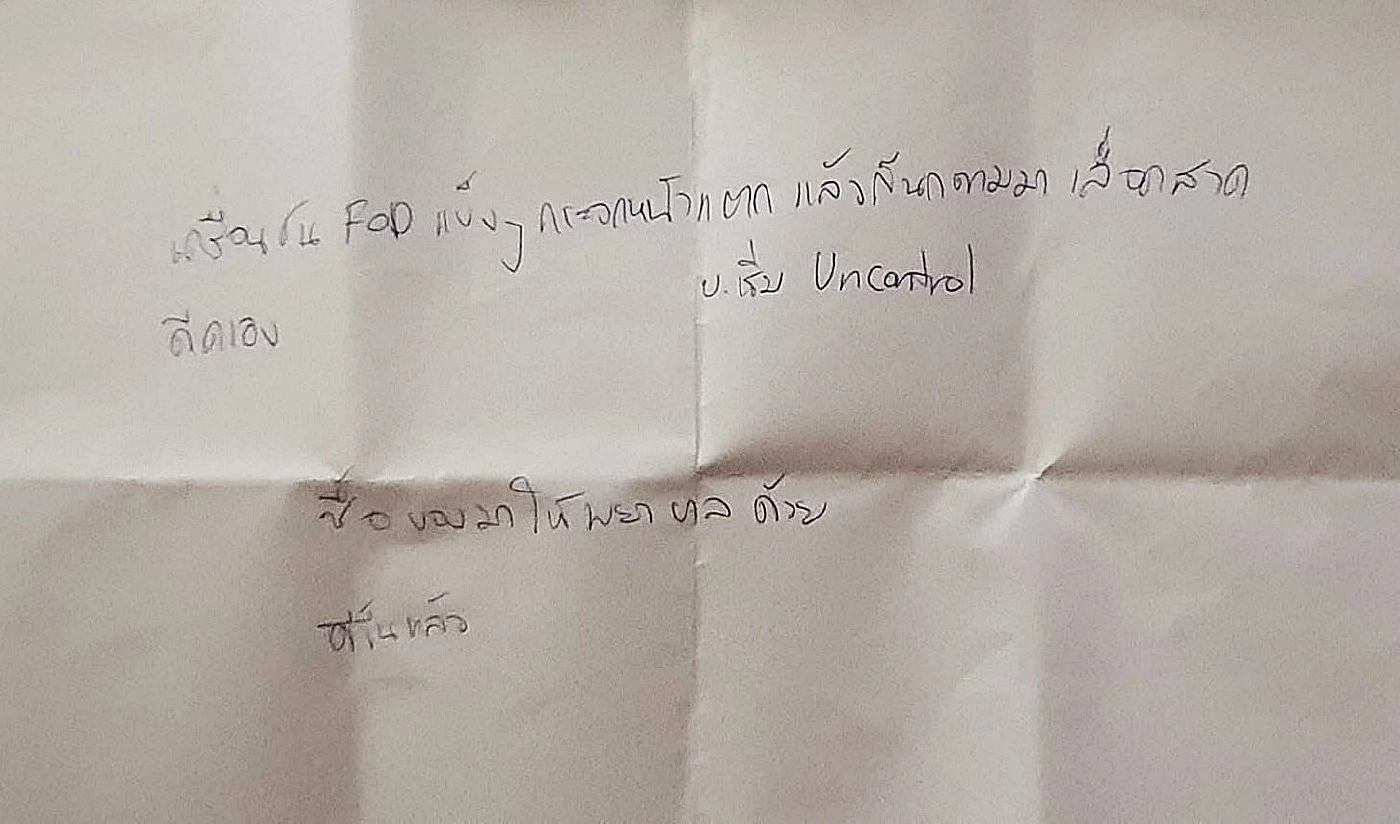 เครื่องชน FOD แข็งๆ กระจกหน้าแตก แล้วก็นกตามมา เลือดสาด
บ.เริ่ม Uncontrol
ดีดเอง
ซื้อของมาให้พยาบาลด้วย
ตื่นแล้ว